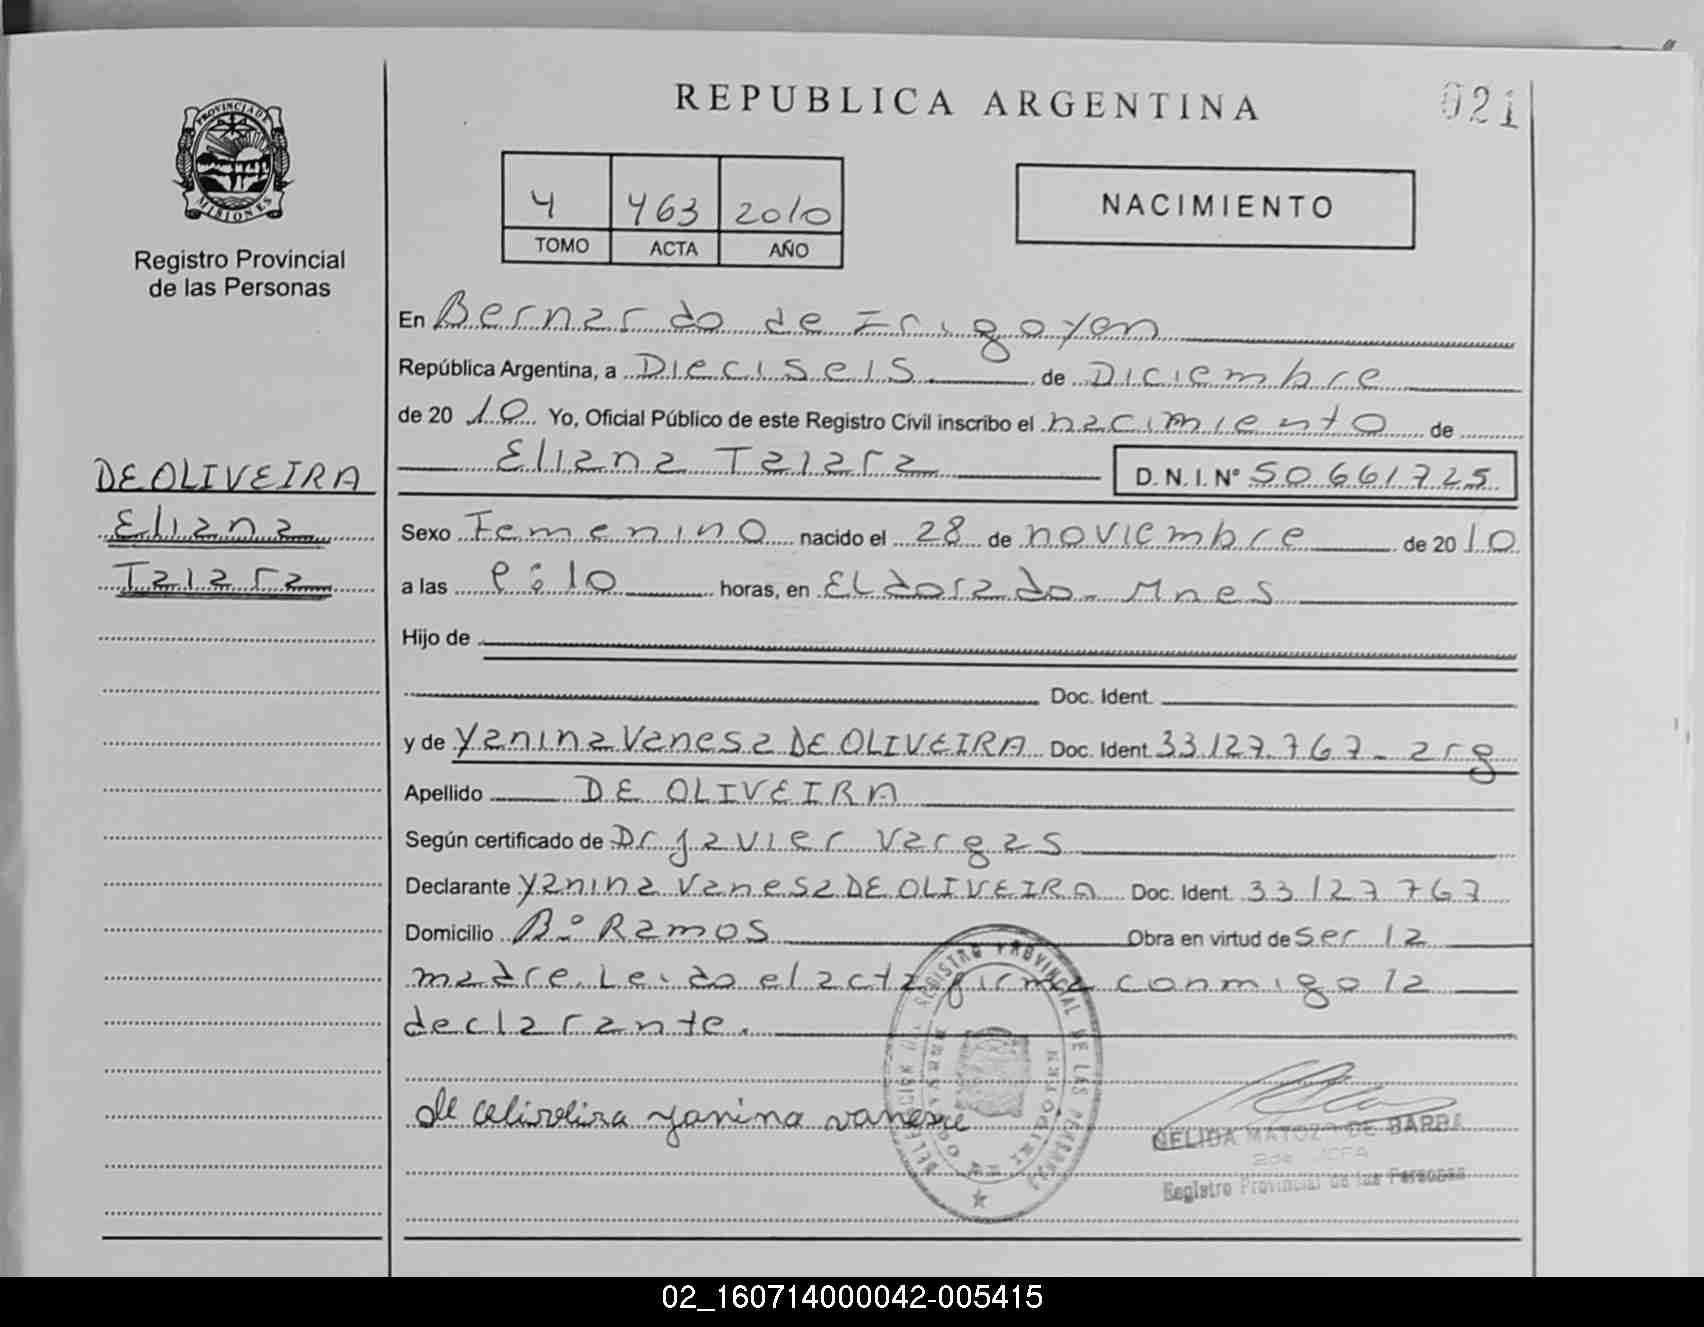 REPUBLICA ARGENTINA
021
PROVINCIA DE
MISIONES
Registro Provincial
de las Personas
4 463 2010
TOMO ACTA AÑO
NACIMIENTO
En Bernardo de Irigoyen
República Argentina, a Dieciseis de Diciembre
de 20 10 Yo, Oficial Público de este Registro Civil inscribo el nacimiento de
Eliana Taiara D.N.I. Nº 50661725
DE OLIVEIRA
Eliana
Taiara
Sexo Femenino nacido el 28 de noviembre de 20 10
a las :10 horas, en ELdorado - Mnes
Hijo de
Doc. Ident.
y de Yanina Vanesa DE OLIVEIRA Doc. Ident. 33.127.767 - arg
Apellido DE OLIVEIRA
Según certificado de Dr Javier Vargas
Declarante Yanina Vanesa DE OLIVEIRA Doc. Ident. 33127767
Domicilio Bº Ramos Obra en virtud de ser la
madre. Leido el acta firma conmigo la
declarante.
de oliveira yanina vanesa
REGISTRO PROVINCIAL DE LAS PERSONAS
NELIDA MATOZO DE BARBA
2da JEFA
Registro Provincial de las Personas
02_160714000042-005415